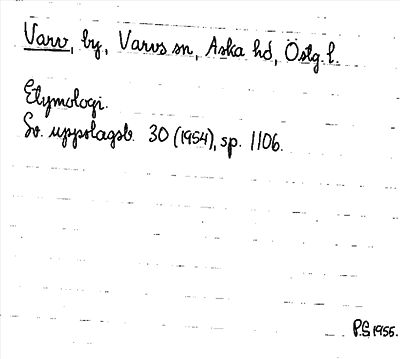 Varv, by, Varvs sn, Aska hd, Östg. l.
Etymologi.
Sv. uppslagsb. 30 (1954), sp. 1106.
P.G 1955.